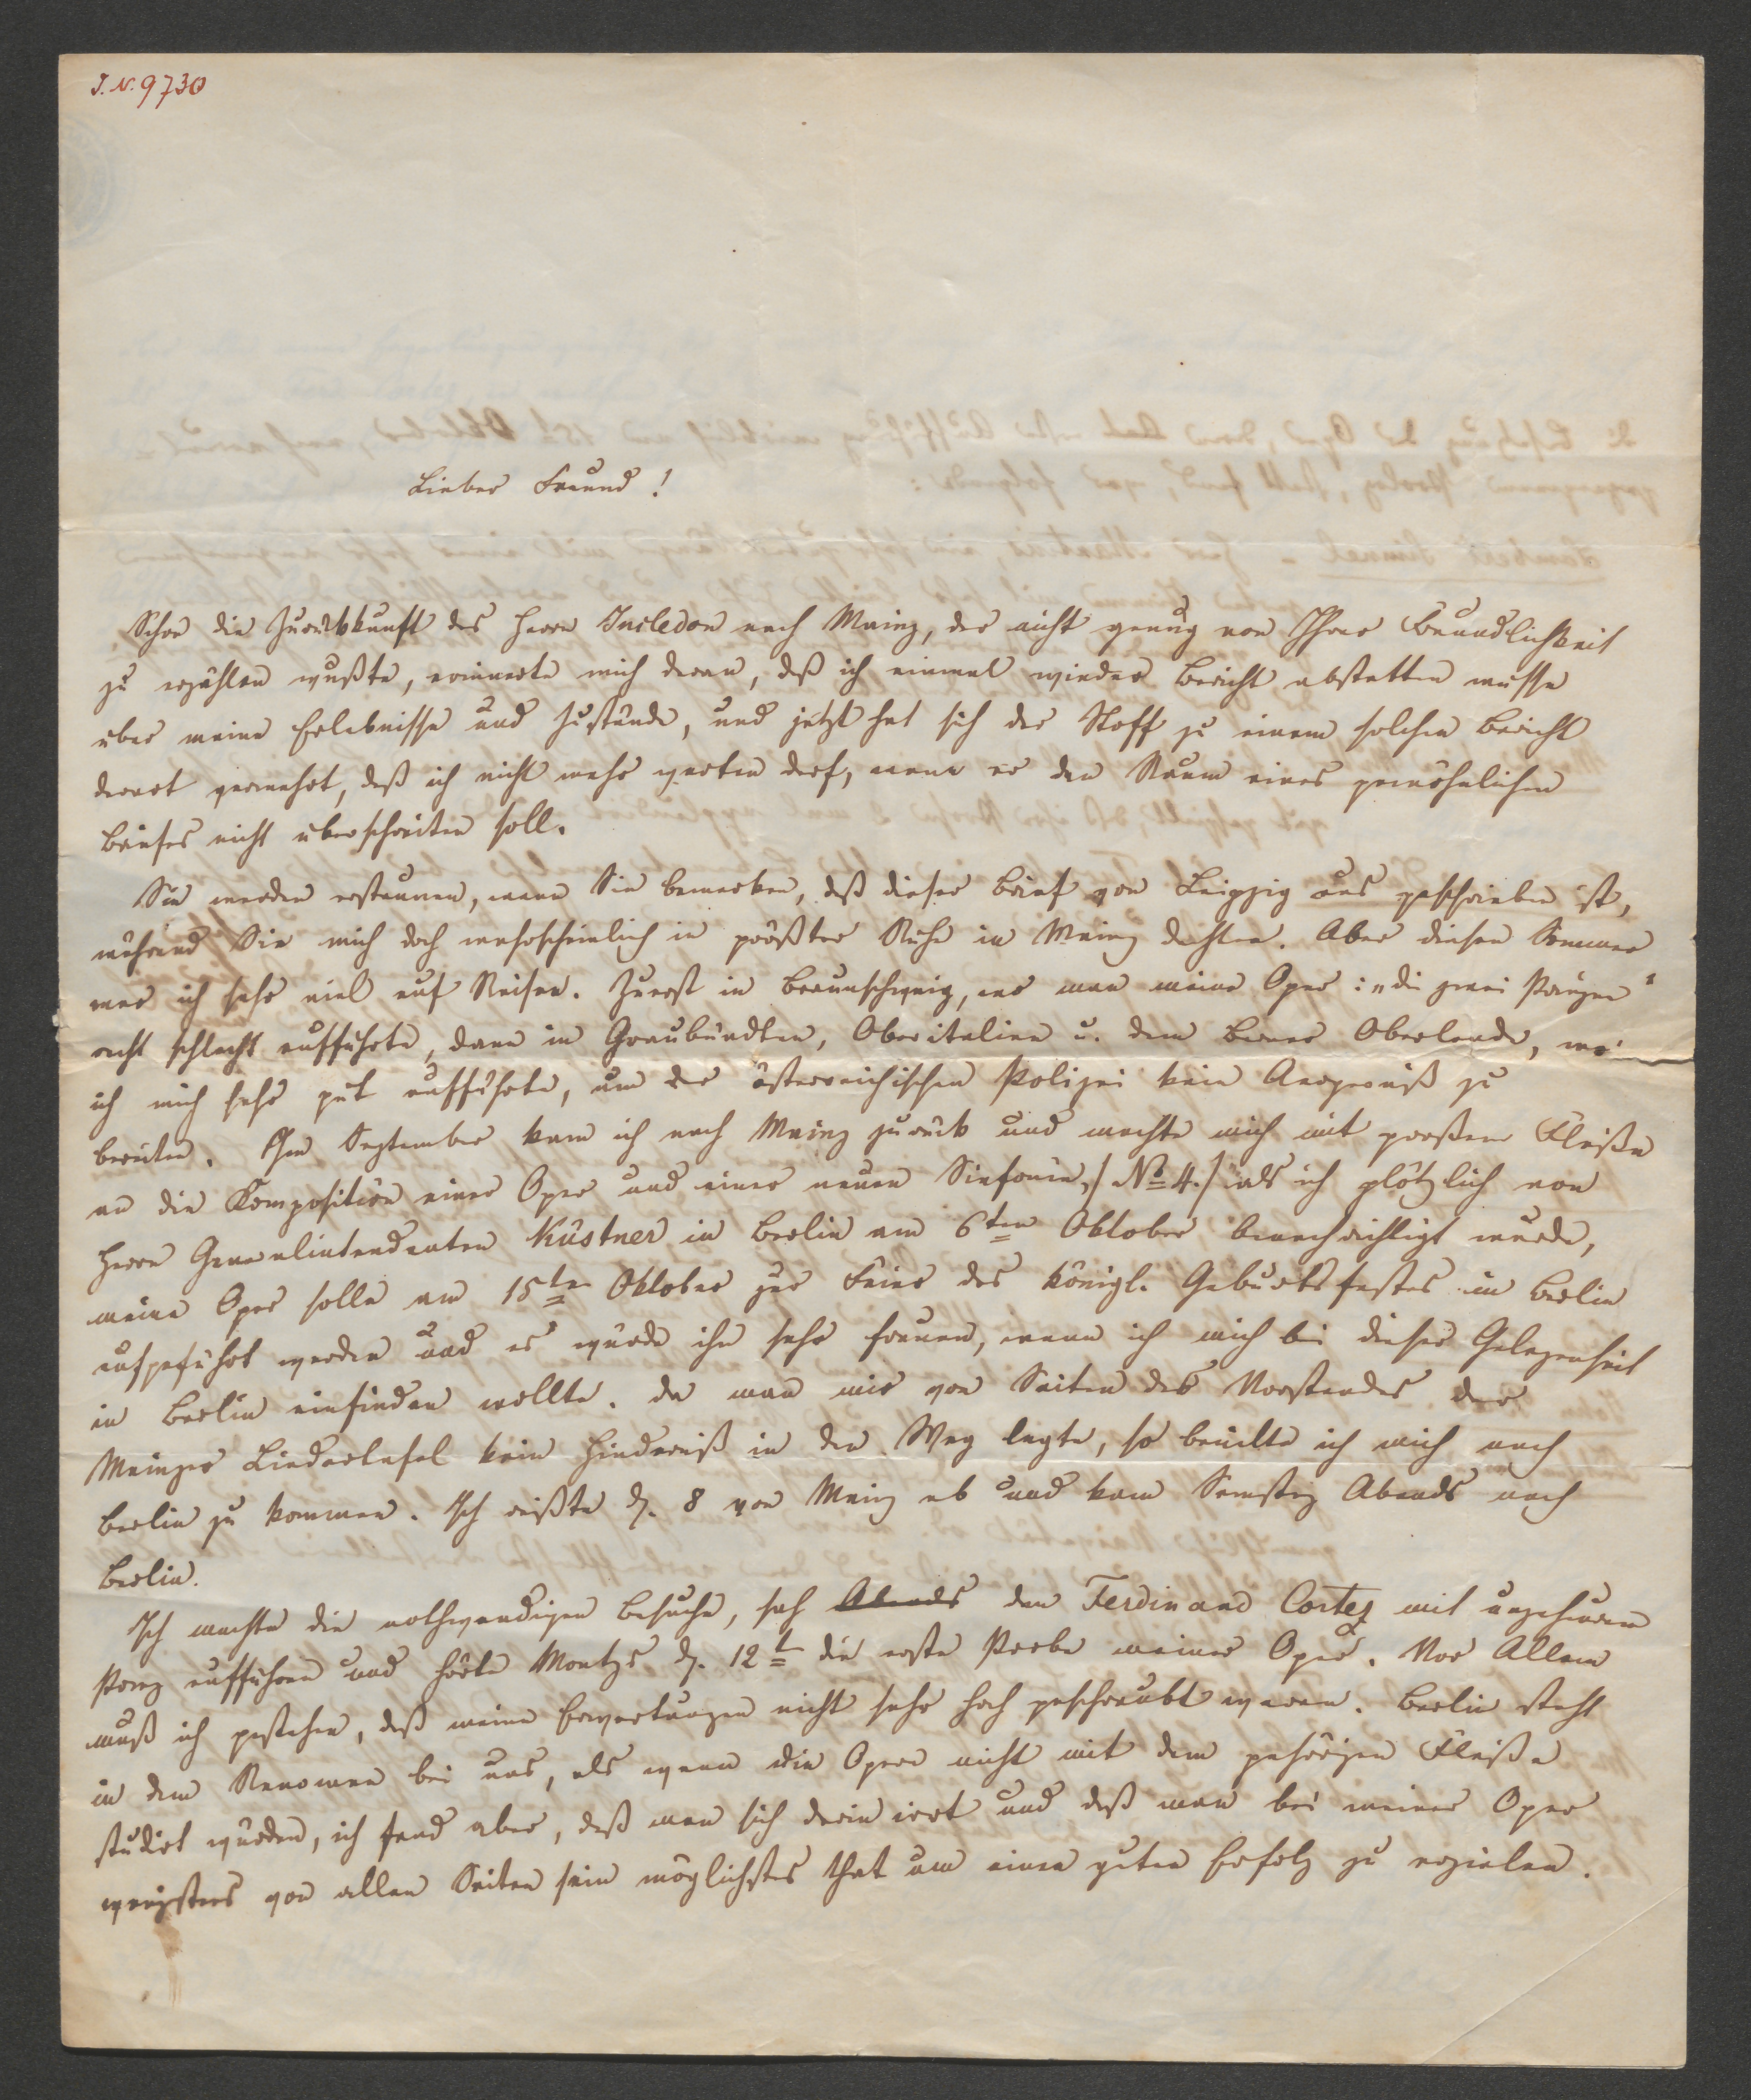 J. N. 9730
Lieber Freund!
Schon die Zurückkunft des Herrn Incledon nach Mainz, der nicht genug von Ihrer Freundlichkeit
zu erzählen wußte, erinnerte mich daran, daß ich einmal wieder Bericht abstatten müsse
über meine Erlebnisse und Zustände, und jetzt hat sich der Stoff zu einem solchen Bericht
derart vermehrt, daß ich nicht mehr warten darf, wenn er den Raum eines gewöhnlichen
Briefes nicht überschreiten soll.
Sie werden erstaunen, wenn Sie bemerken, daß dieser Brief von Leipzig aus geschrieben ist,
während Sie mich doch wahrscheinlich in größter Ruhe in Mainz dachten. Aber diesen Sommer
war ich sehr viel auf Reisen. Zuerst in Braunschweig, wo man meine Oper: „die zwei Prinzen"
recht schlecht aufführte, dann in Graubündten, Oberitalien u. dem Berner Oberlande, wo
ich mich sehr gut aufführte, um der österreichischen Polizei kein Aergerniß zu
bereiten. Im September kam ich nach Mainz zurück und machte mich mit großem Fleiße
an die Komposition einer Oper und einer neuen Sinfonie, /: No 4. :/ als ich plötzlich von
Herrn Generalintendanten Küstner in Berlin am 6ten Oktober benachrichtigt wurde,
meine Oper solle am 15ten Oktober zur Feier des königl. Geburtsfestes in Berlin
aufgeführt werden und es würde ihn sehr freuen, wenn ich mich bei dieser Gelegenheit
in Berlin einfinden wollte. Da man mir von Seiten des Vorstandes der
Mainzer Liedertafel kein Hinderniß in den Weg legte, so beeilte ich mich nach
Berlin zu kommen. Ich reißte d. 8 von Mainz ab und kam Samstag Abends nach
Berlin.
Ich machte die nothwendigen Besuche, sah Abends den Ferdinand Cortez mit ungeheurem
Pomp aufführen und hörte Montgs d. 12t die erste Probe meiner Oper. Vor Allem
muß ich gestehen, daß meine Erwartungen nicht sehr hoch geschraubt waren. Berlin steht
in dem Renomee bei uns, als wenn die Opern nicht mit dem gehörigen Fleiße
studirt würden, ich fand aber, daß man sich darin irrt und daß man bei meiner Oper
wenigstens von allen Seiten sein möglichstes that um einen guten Erfolg zu erzielen.